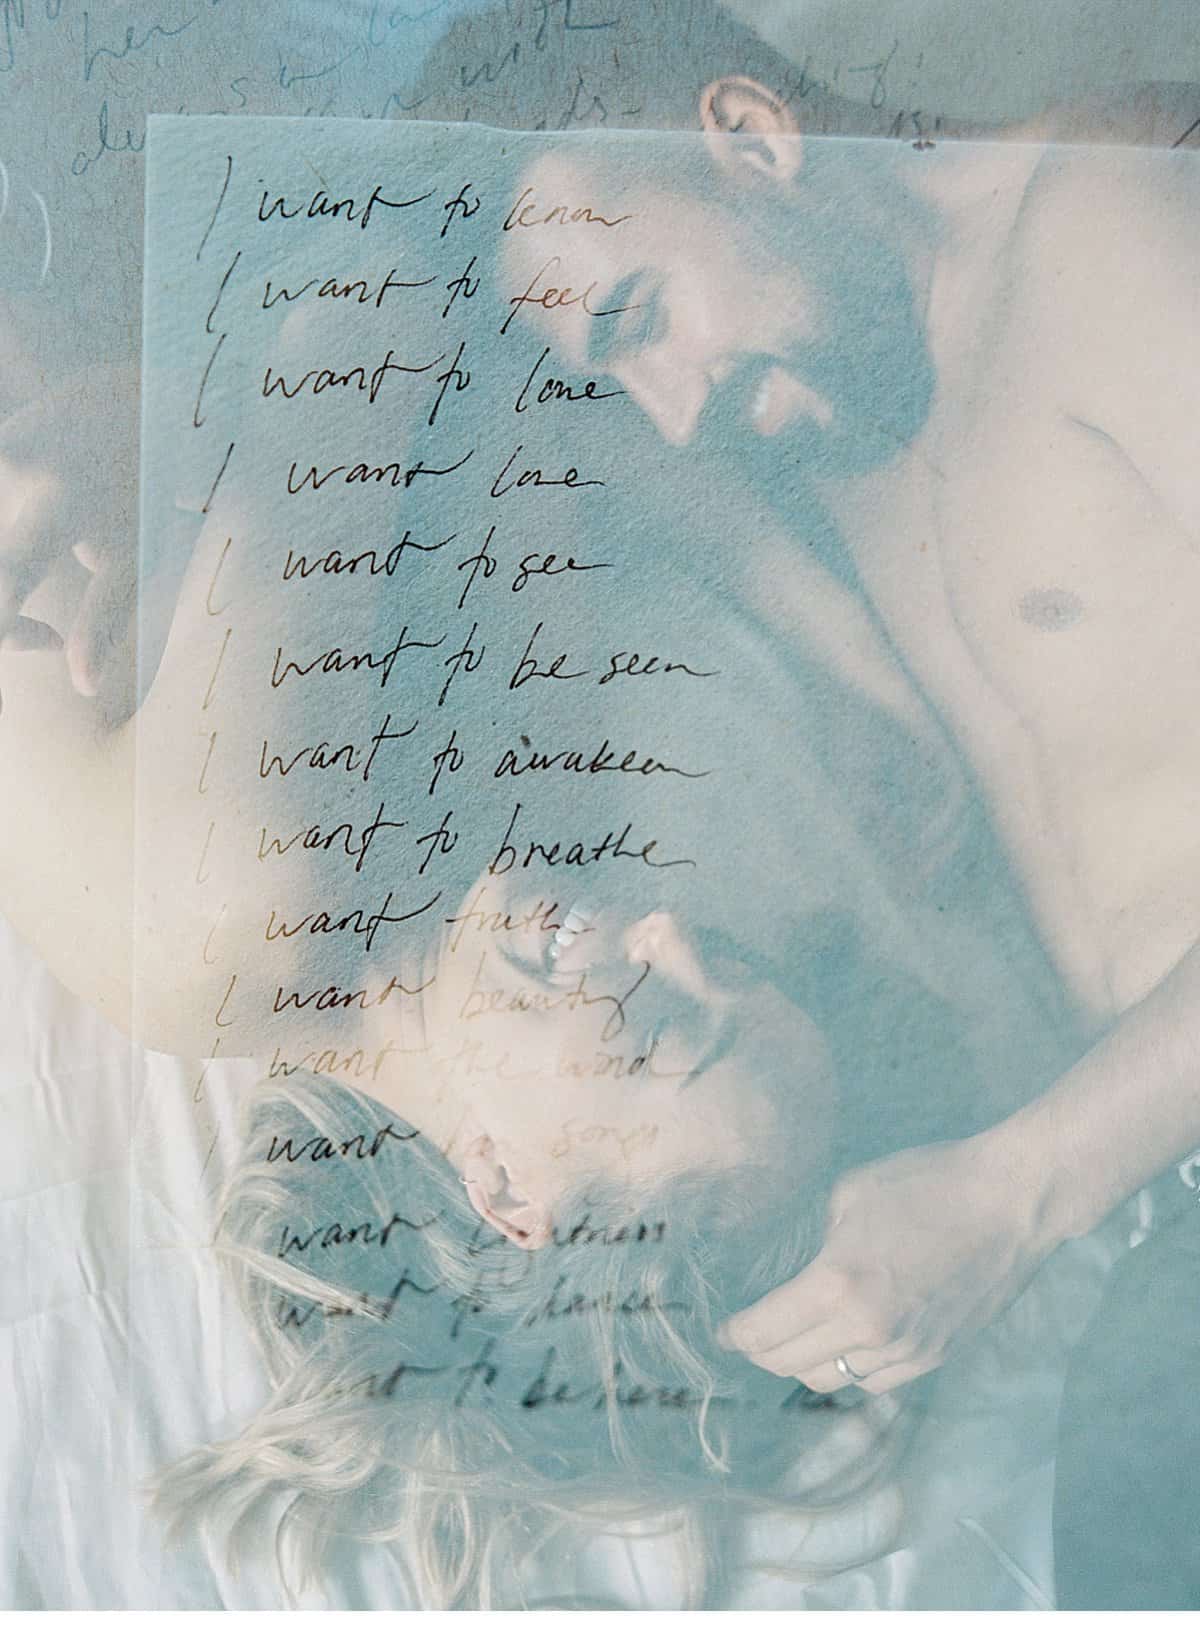 her
with
I want to know
I want to feel
I want to love
I want love
I want to see
I want to be seen
I want to awaken
I want to breathe
I want truth
I want beauty
I want the wind
I want songs
want
want to dance
want to be here.